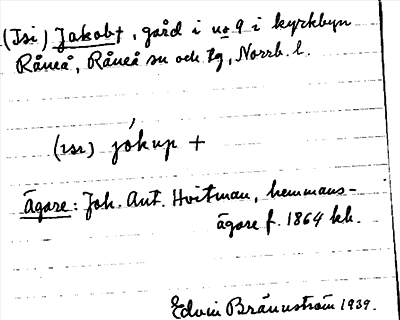 (Isi) Jakob†, gård i no 9 i kyrkbyn
Råneå, Råneå sn och tg, Norrb. l.
(ısı) jókup +
Ägare: Joh. Ant. Hvitman, hemmans-
ägare f. 1864 kh.
Edvin Brännström 1939.